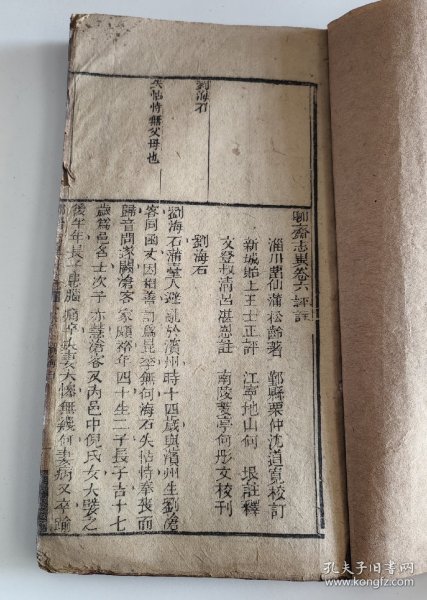 劉海石
失怙恃無父母也
聊齋志異卷六評註
淄川 留仙 蒲松齡著 鄞縣 栗仲 沈道寬校訂
新城 貽上 王士正評 江寧 地山 何 垠註釋
文登 叔清 呂湛恩註 南陵 雙亭 何彤文校刊
劉海石
劉海石蒲臺人避亂於濱州時十四歲與濱州生劉滄
客同函丈因相善訂為昆季無何海石失怙恃奉喪而
歸音問遂闕滄客家頗裕年四十生二子長子吉十七
歲為邑名士次子亦慧滄客又內邑中倪氏女大嬖之
後半年長子患腦痛卒夫妻大慘無幾何妻病又卒踰
孔夫子旧书网
www.kongfz.com